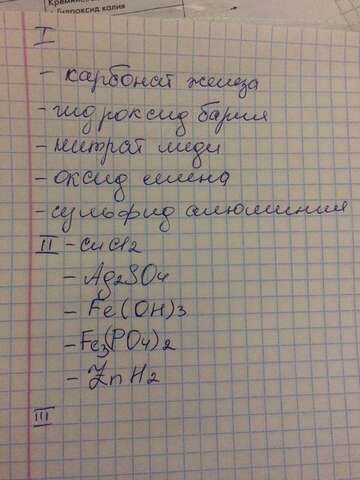 гидроксид калия
I
- карбонат железа
- гидроксид бария
- нитрат меди
- оксид
- сульфид алюминия
II - CuCl2
- Ag2SO4
- Fe(OH)3
- Fe3(PO4)2
- ZnH2
III